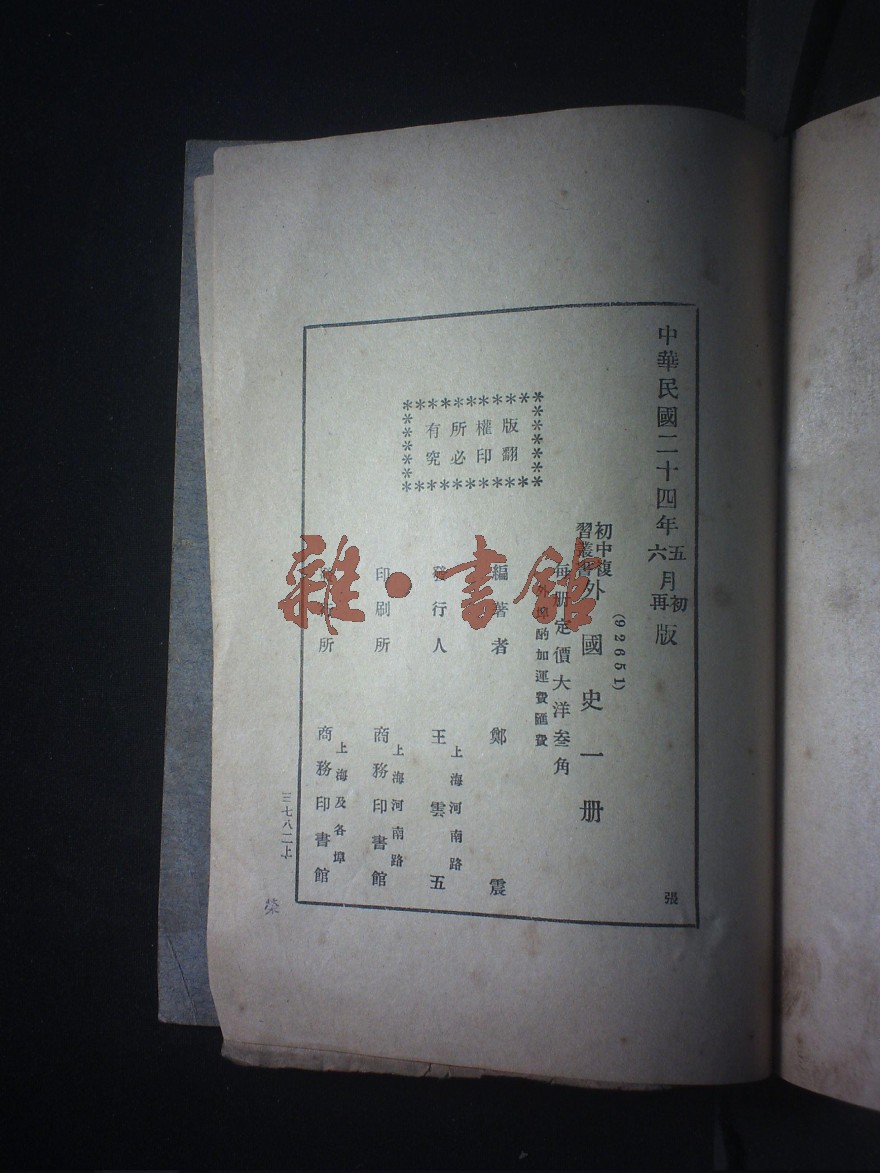 中華民國二十四年五月初版
六 再
(92651)
初中複習叢書外國史一册
每册定價大洋叁角
外埠酌加運費匯費
版權所有
翻印必究
編著者 鄭震
發行人 王雲五
上海河南路
印刷所 商務印書館
上海河南路
發行所 商務印書館
上海及各埠
三七八二上
張
雜·書館